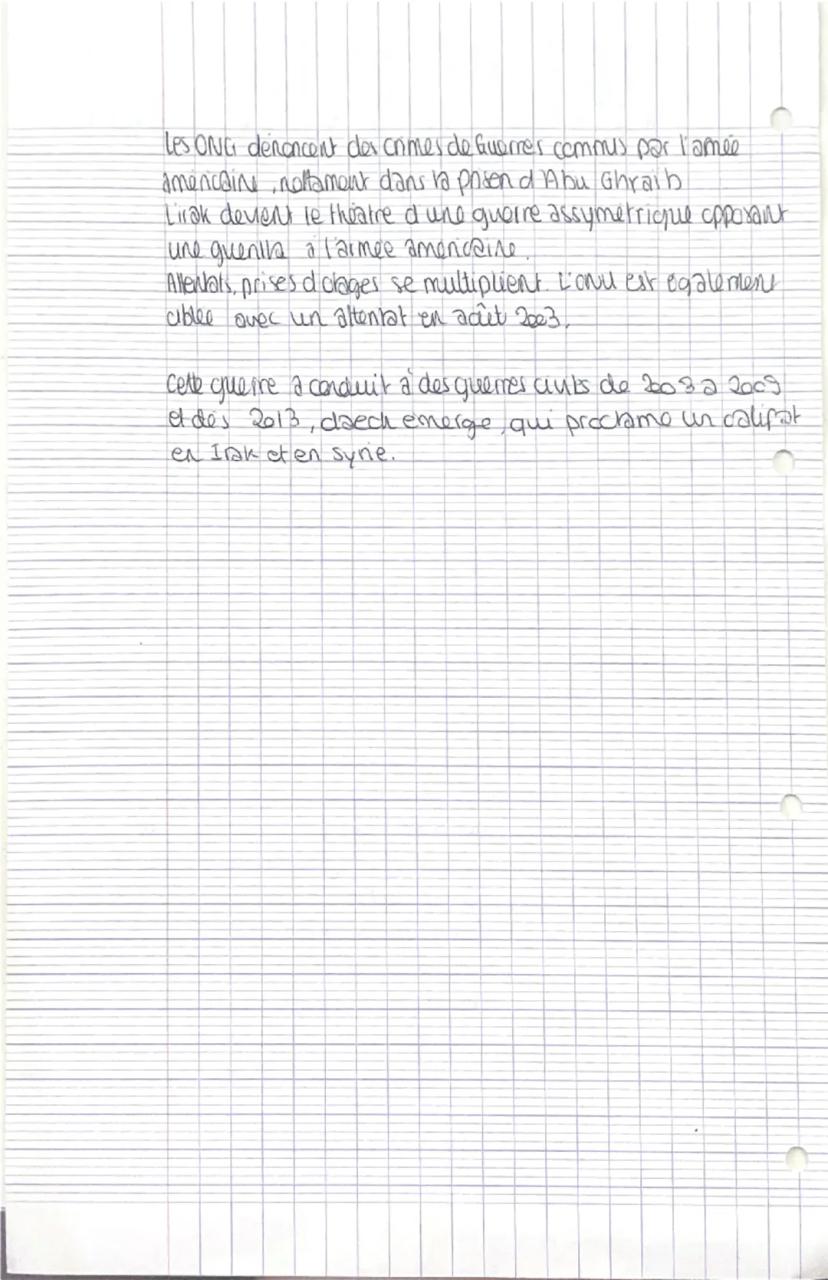 Les ONG dénoncent des crimes de Guerres commis par l'armée
américaine, nottament dans la prison d'Abu Ghraib
L'irak devient le théatre d'une guerre assymetrique opposant
une guerilla à l'armée américaine.
Attentats, prises d'otages se multiplient. L'onu est également
ciblée avec un attentat en août 2003.
Cette guerre a conduit à des guerres civils de 2003 à 2009
et dès 2013, daech émerge, qui proclame un califat
en Irak et en syrie.